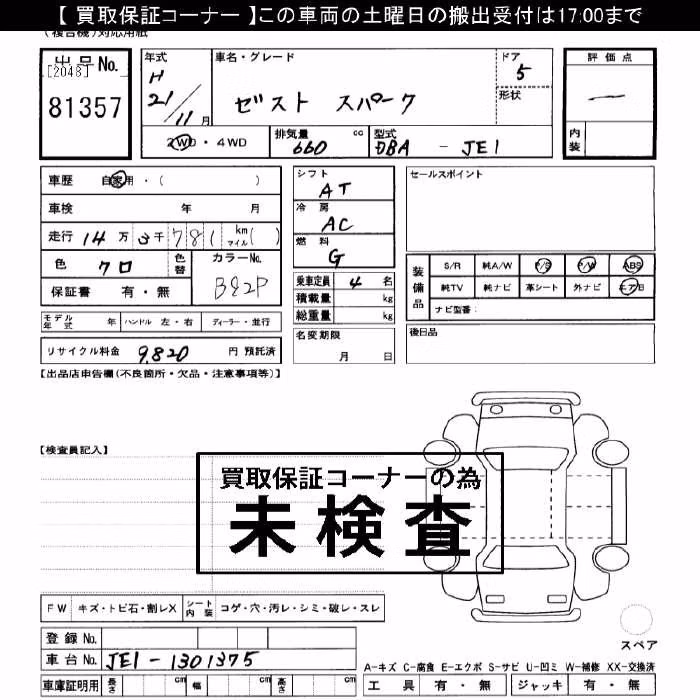 【 買取保証コーナー 】この車両の土曜日の搬出受付は17:00まで
(複合機)対応用紙
出品No.
[2048]
81357
年式
H
21/11月
車名・グレード
ゼスト スパーク
ドア
5
形状
2WD・4WD
排気量 cc
660
型式
DBA - JE1
評価点
一
内装
車歴 自家用・( )
車検 年 月
走行 14万3千781 km マイル( )
色 クロ
色替
カラーNo.
B92P
保証書 有・無
シフト
AT
冷房
AC
燃料
G
乗車定員 4 名
積載量 kg
総重量 kg
セールスポイント
装備品
S/R 純A/W P/S P/W ABS
純TV 純ナビ 革シート 外ナビ エアB
ナビ型番:
モデル年式 年 ハンドル 左・右 ディーラー・並行
リサイクル料金 9,820 円 預託済
名変期限
月 日
後日品
【出品店申告欄(不良箇所・欠品・注意事項等)】
【検査員記入】
買取保証コーナーの為
未検査
FW キズ・トビ石・割レX シート内装 コゲ・穴・汚レ・シミ・破レ・スレ
登録No.
車台No. JE1-1301375
車庫証明用 長さ cm 幅 cm 高さ cm
スペア
A-キズ C-腐食 E-エクボ S-サビ U-凹ミ W-補修 XX-交換済
工具 有・無 ジャッキ 有・無